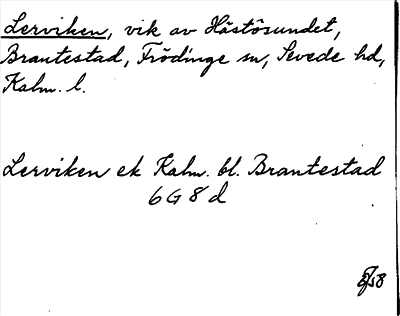 Lerviken, vik av Hästösundet,
Brantestad, Frödinge sn, Sevede hd,
Kalm. l.
Lerviken ek Kalm. bl. Brantestad
6G8d